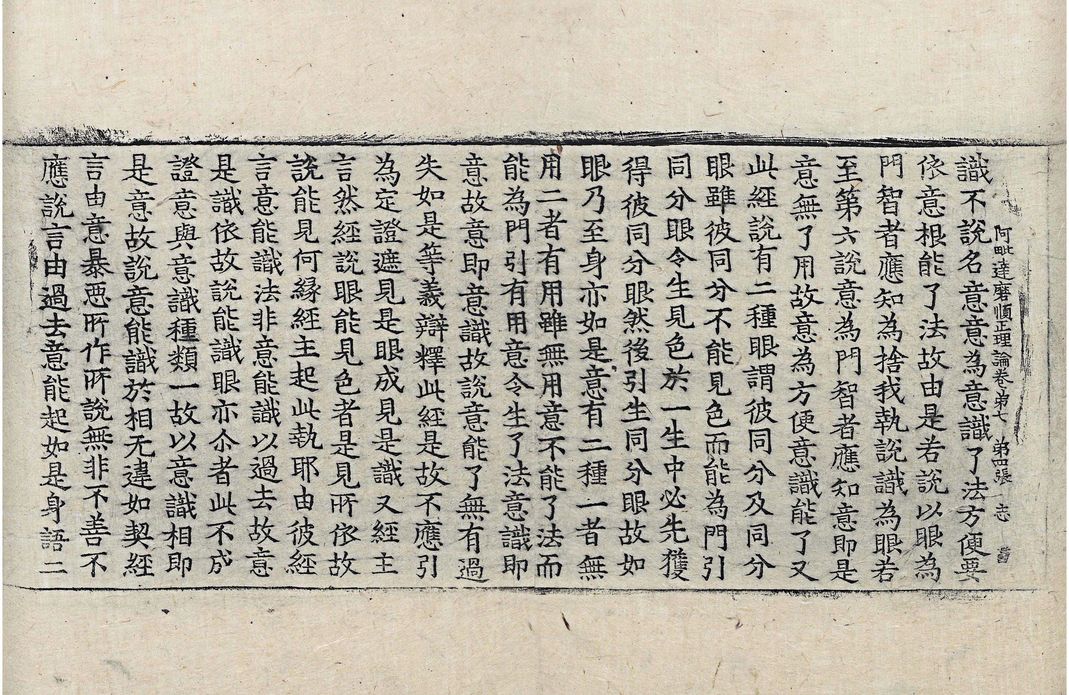 阿毗達磨順正理論卷第七 第四張 志
識不說名意意為意識了法方便要
依意根能了法故由是若說以眼為
門智者應知為捨我執說識為眼若
至第六說意為門智者應知意即是
意無了用故意為方便意識能了又
此經說有二種眼謂彼同分及同分
眼雖彼同分不能見色而能為門引
同分眼令生見色於一生中必先獲
得彼同分眼然後引生同分眼故如
眼乃至身亦如是意有二種一者無
用二者有用雖無用意不能了法而
能為門引有用意令生了法意識即
意故意即意識故說意能了無有過
失如是等義辯釋此經是故不應引
為定證遮見是眼成見是識又經主
言然經說眼能見色者是見所依故
說能見何緣經主起此執耶由彼經
言意能識法非意能識以過去故意
是識依故說能識眼亦尒者此不成
證意與意識種類一故以意識相即
是意故說意能識於相无違如契經
言由意暴惡所作所說無非不善不
應說言由過去意能起如是身語二